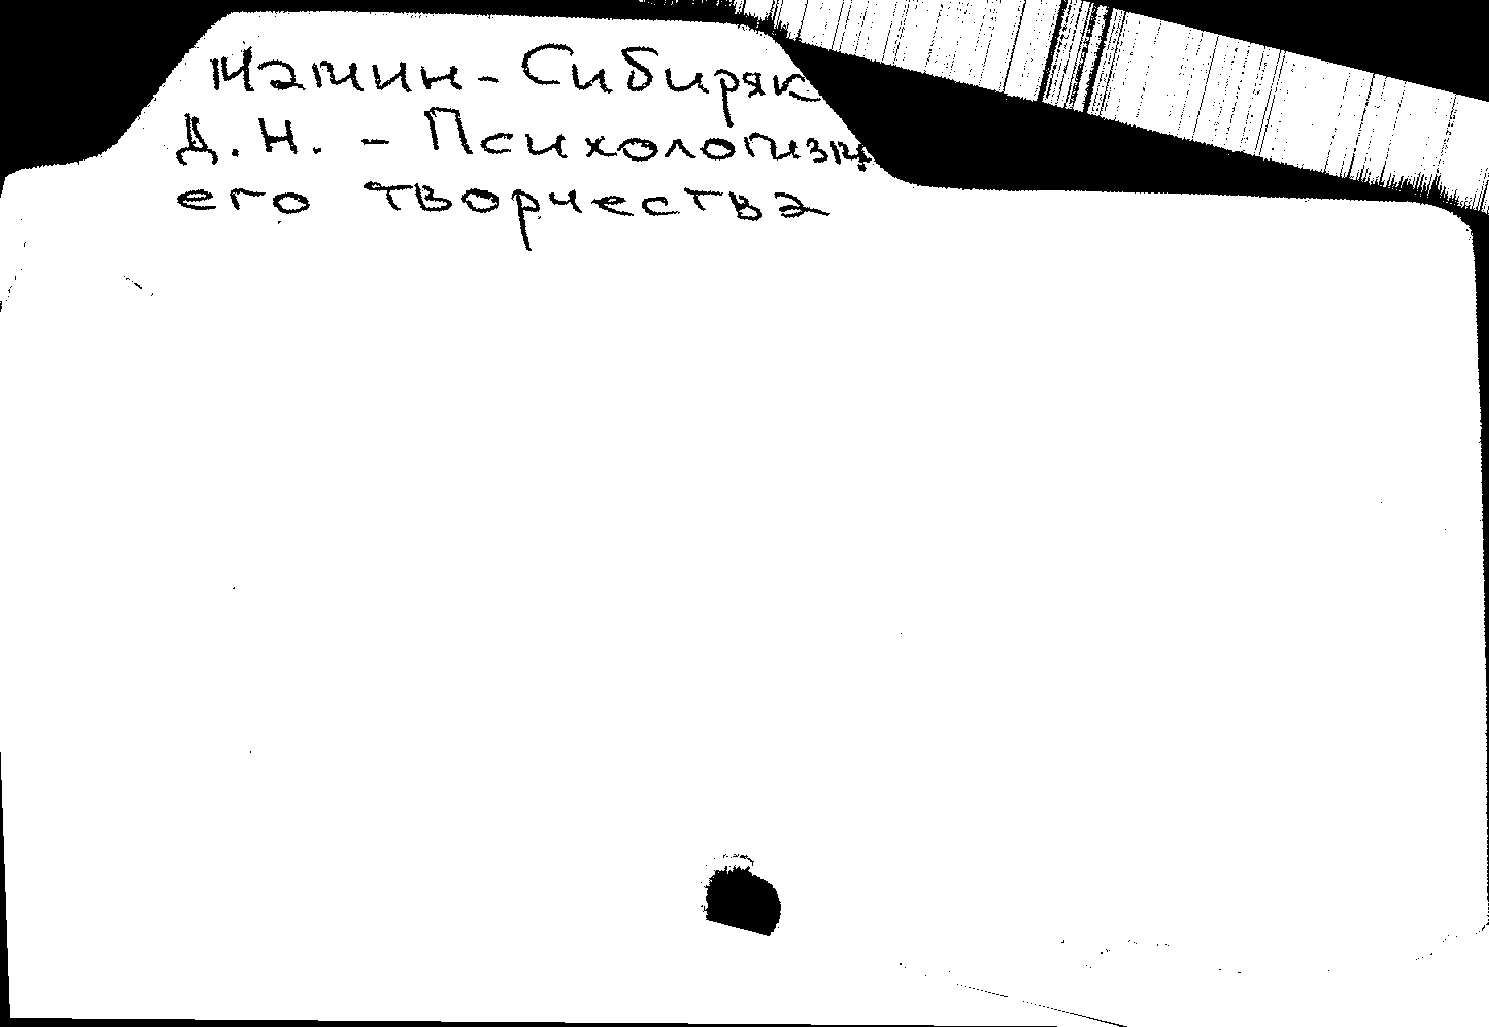 Мамин-Сибиряк
Д. Н. - Психологизм
его творчества